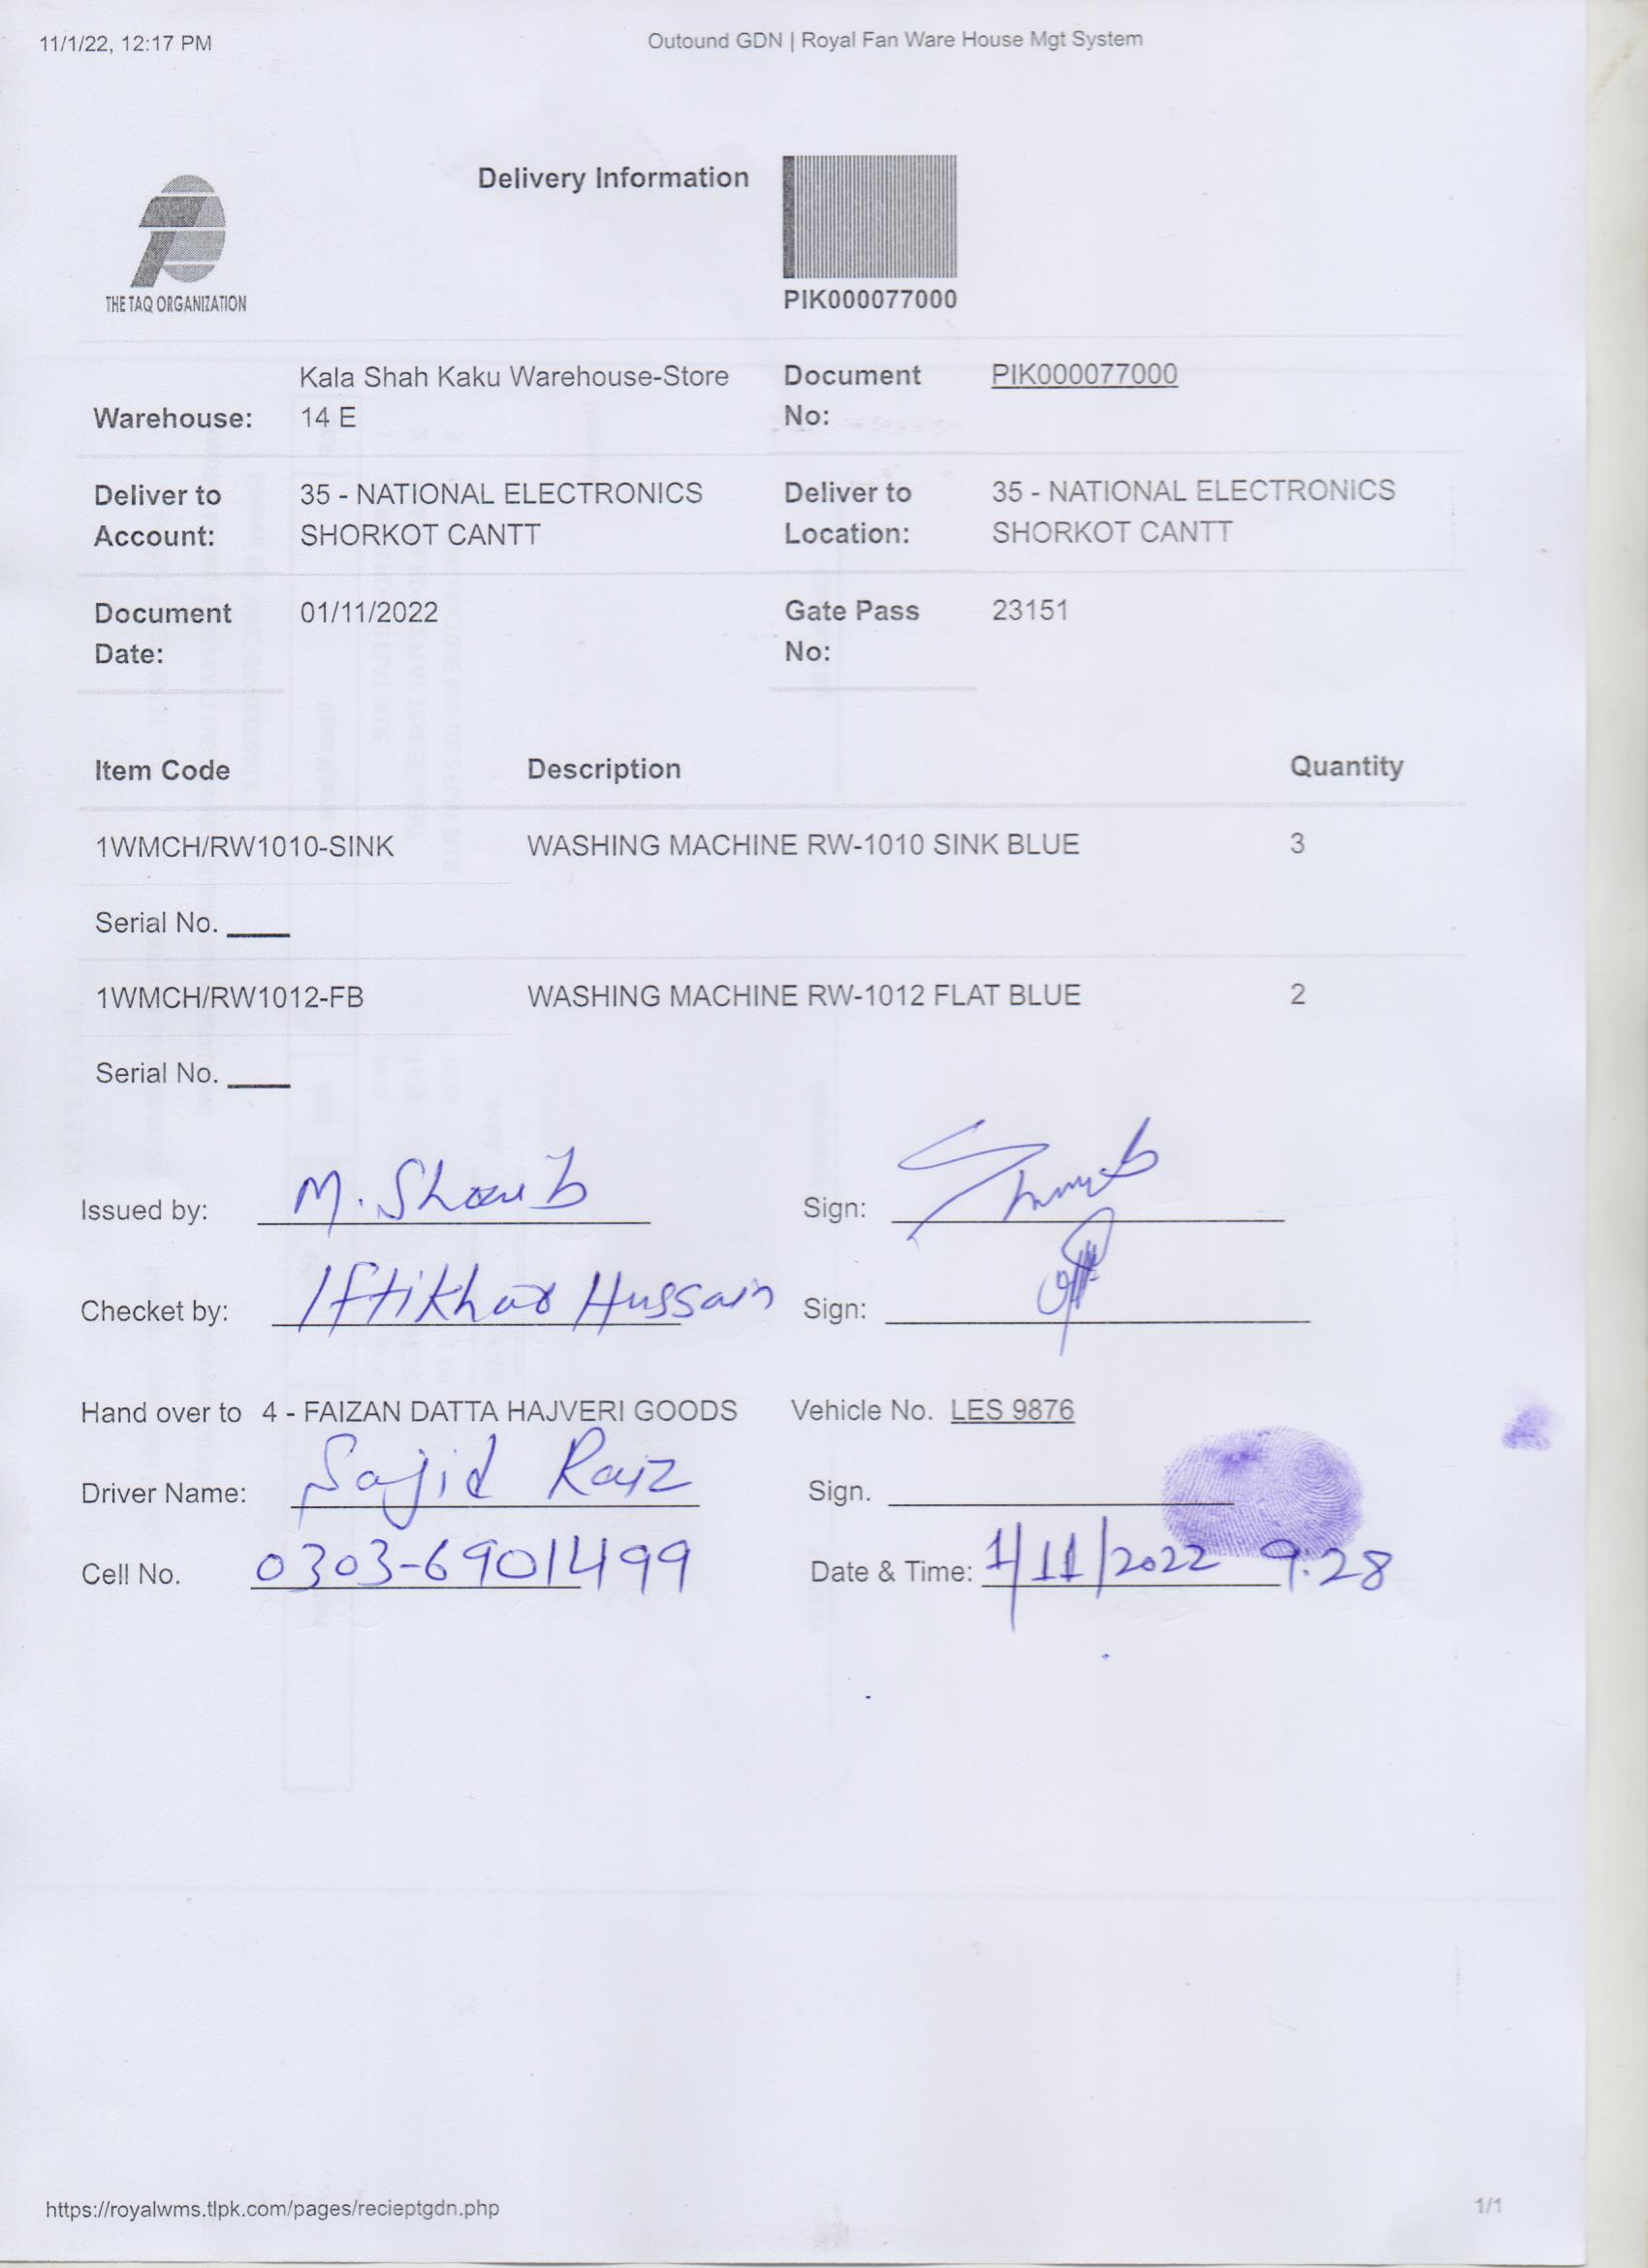 11/1/22, 12:17 PM
Outound GDN | Royal Fan Ware House Mgt System
Delivery Information
THE TAQ ORGANIZATION
PIK000077000
Warehouse: Kala Shah Kaku Warehouse-Store
14 E
Document No: PIK000077000
Deliver to Account: 35 - NATIONAL ELECTRONICS
SHORKOT CANTT
Deliver to Location: 35 - NATIONAL ELECTRONICS
SHORKOT CANTT
Document Date: 01/11/2022
Gate Pass No: 23151
Item Code Description Quantity
1WMCH/RW1010-SINK WASHING MACHINE RW-1010 SINK BLUE 3
Serial No. ____
1WMCH/RW1012-FB WASHING MACHINE RW-1012 FLAT BLUE 2
Serial No. ____
Issued by: M. Shoaib Sign:
Checket by: Iftikhar Hussain Sign:
Hand over to 4 - FAIZAN DATTA HAJVERI GOODS Vehicle No. LES 9876
Driver Name: Sajid Raiz Sign.
Cell No. 0303-6901499 Date & Time: 1/11/2022 9:28
https://royalwms.tlpk.com/pages/recieptgdn.php
1/1